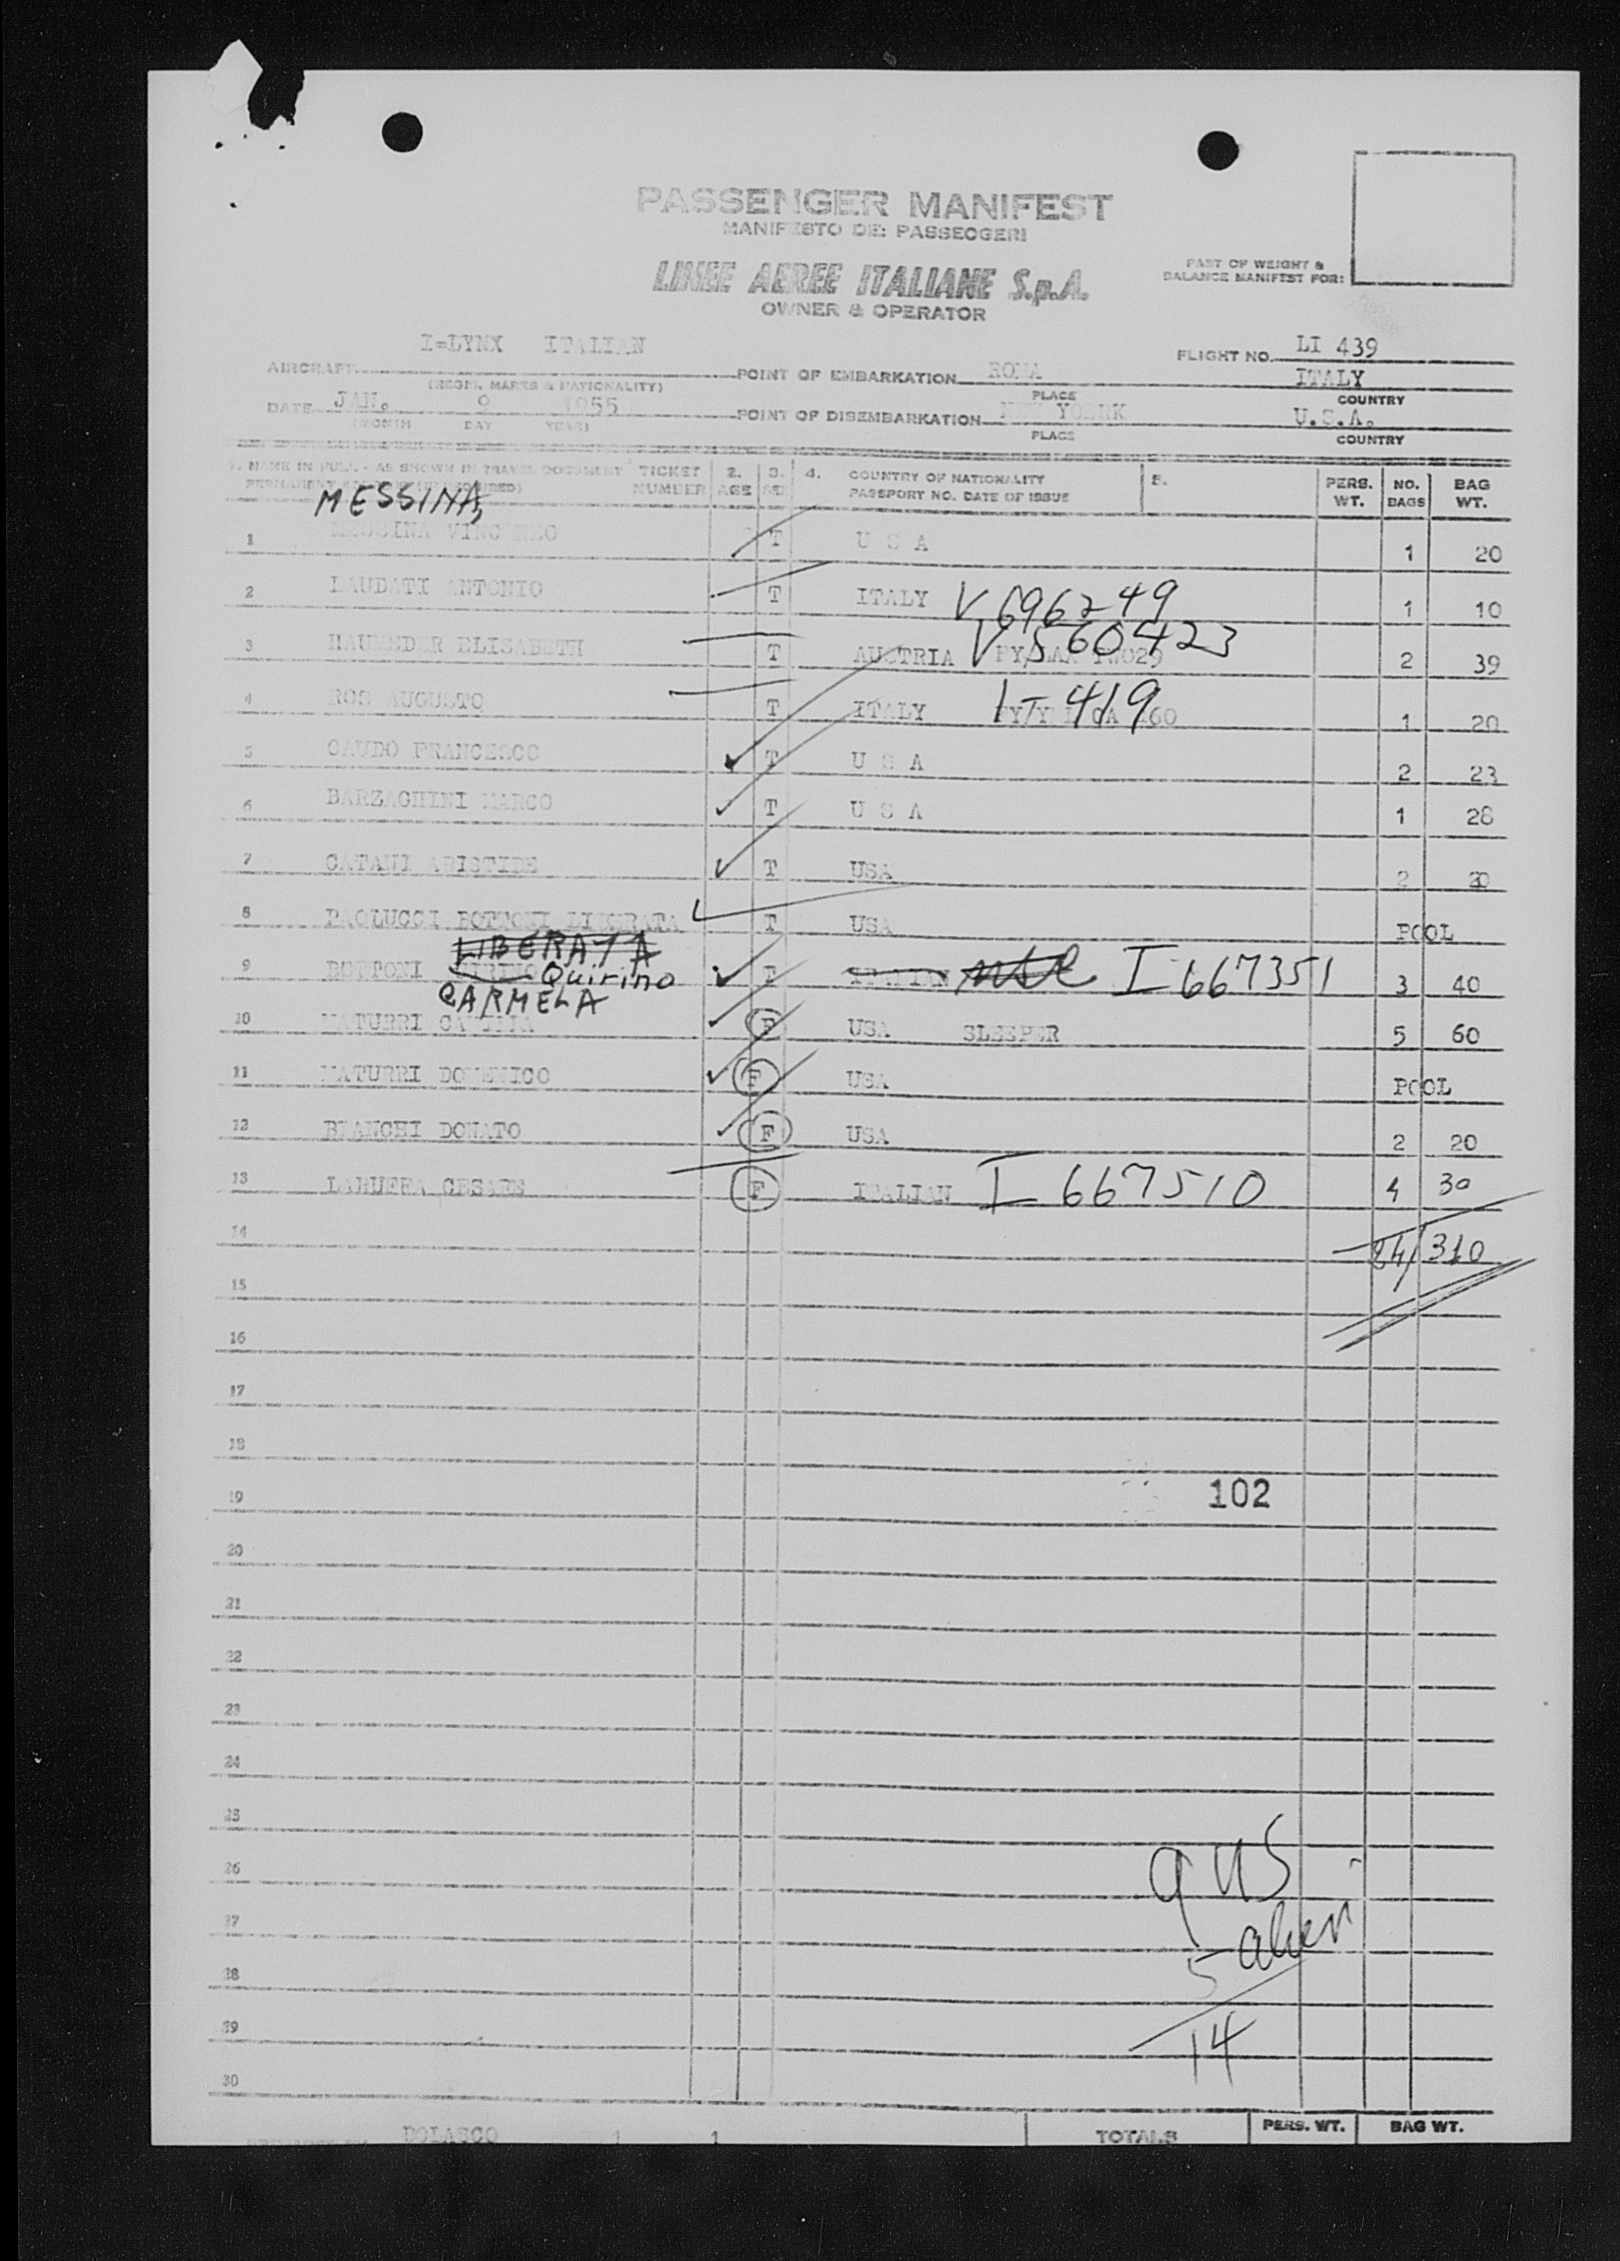 PASSENGER MANIFEST
MANIFESTO DEI PASSEGGERI
LINEE AEREE ITALIANE S.p.A.
OWNER & OPERATOR
PART OF WEIGHT &
BALANCE MANIFEST FOR:
AIRCRAFT I-LYNX ITALIAN
(REGIS. MARKS & NATIONALITY)
POINT OF EMBARKATION ROMA ITALY
PLACE COUNTRY
FLIGHT NO. LI 439
DATE JAN. 9 1955
(MONTH DAY YEAR)
POINT OF DISEMBARKATION NEW YORK U.S.A.
PLACE COUNTRY
1. NAME IN FULL - AS SHOWN IN TRAVEL DOCUMENT TICKET NUMBER 2. AGE 3. 4. COUNTRY OF NATIONALITY PASSPORT NO. DATE OF ISSUE 5. PERS. WT. NO. BAGS BAG WT.
MESSINA,
1 MESSINA VINCENZO T U S A 1 20
2 LAUDATI ANTONIO T ITALY V 696249 1 10
3 ELISABETH T AUSTRIA V 560423 2 39
4 ROS AUGUSTO T ITALY I-419 1 20
5 CAUDO FRANCESCO T U S A 2 23
6 BARZAGHINI MARCO T U S A 1 28
7 CATANI ARISTIDE T USA 2 20
8 PAOLUCCI BOTTONI LIBERATA T USA POOL
LIBERATA
9 BOTTONI Quirino T ITALIAN I 667351 3 40
CARMELA
10 MATURRI F USA SLEEPER 5 60
11 MATURRI DOMENICO F USA POOL
12 BIANCHI DONATO F USA 2 20
13 CESARE F ITALIAN I 667510 4 30
14 24/310
15
16
17
18
19 102
20
21
22
23
24
25
26 9 US
27 5 alien
28
29 14
30
DOLASCO TOTALS PERS. WT. BAG WT.